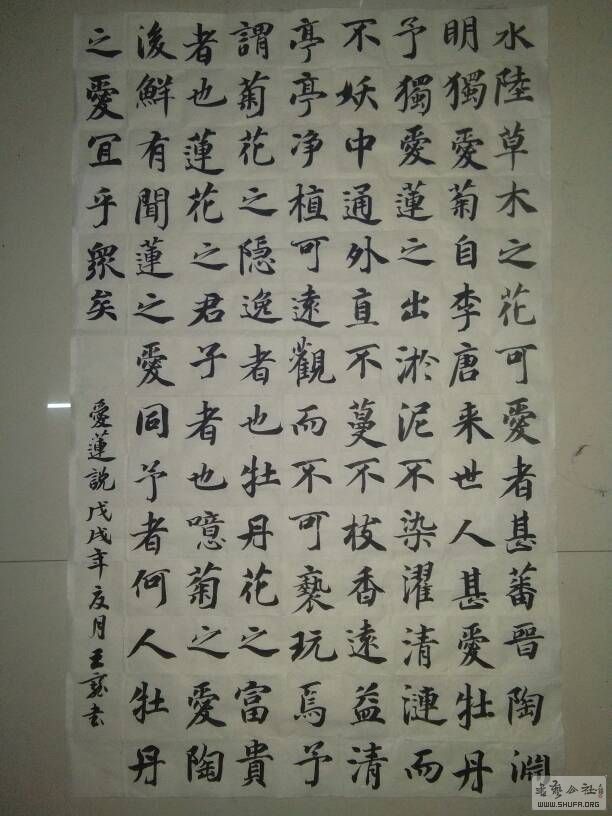 水陸草木之花可愛者甚蕃晉陶淵
明獨愛菊自李唐来世人甚愛牡丹
予獨愛蓮之出淤泥不染濯清漣而
不妖中通外直不蔓不枝香遠益清
亭亭净植可遠觀而不可褻玩焉予
謂菊花之隱逸者也牡丹花之富貴
者也蓮花之君子者也噫菊之愛陶
後鮮有聞蓮之愛同予者何人牡丹
之愛宜乎眾矣
愛蓮説戊戌年夏月王书
书艺公社
WWW.SHUFA.ORG